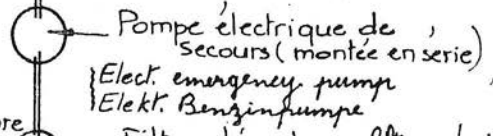 Pompe électrique de
secours (montée en série)
Elect. emergency pump
Elekt. Benzinpumpe